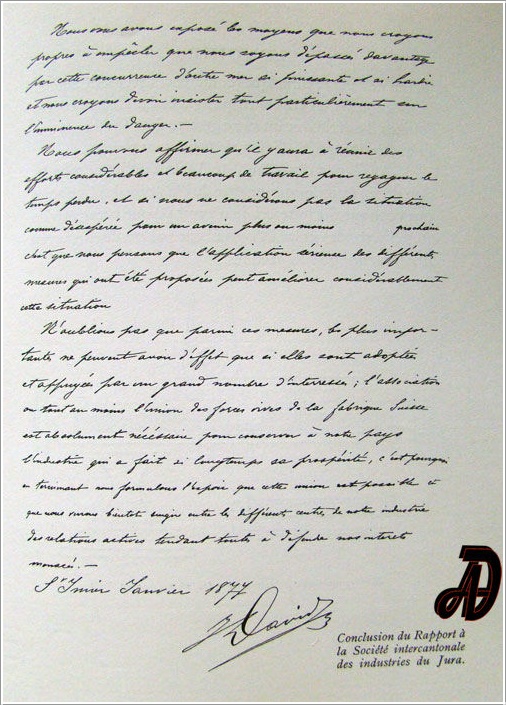 Nous vous avons exposé les moyens que nous croyons
propres à empêcher que nous soyons dépassé davantage
par cette concurrence d'outre mer si puissante et si hardie
et nous croyons devoir insister tout particulièrement sur
l'imminence du danger. —
Nous pouvons affirmer qu'il y aura à réunir des
efforts considérables et beaucoup de travail pour regagner le
temps perdu, et si nous ne considérons pas la situation
comme désespérée pour un avenir plus ou moins prochain
c'est que nous pensons que l'application sérieuse des différents
mesures qui ont été proposées peut améliorer considérablement
cette situation
N'oublions pas que parmi ces mesures, les plus impor-
tantes ne peuvent avoir d'effet que si elles sont adoptées
et appuyées par un grand nombre d'interessés; l'association
ou tout au moins l'union des forces vives de la fabrique Suisse
est absolument nécéssaire pour conserver à notre pays
l'industrie qui a fait si longtemps sa prospérité, c'est pourquoi
en terminant nous formulons l'espoir que cette union est possible et
que nous verrons bientot surgir entre les différents centres de notre industrie
des relations actives tendant toutes à défendre nos interets
menacés. —
St Imier Janvier 1877
David
AD
Conclusion du Rapport à
la Société intercantonale
des industries du Jura.